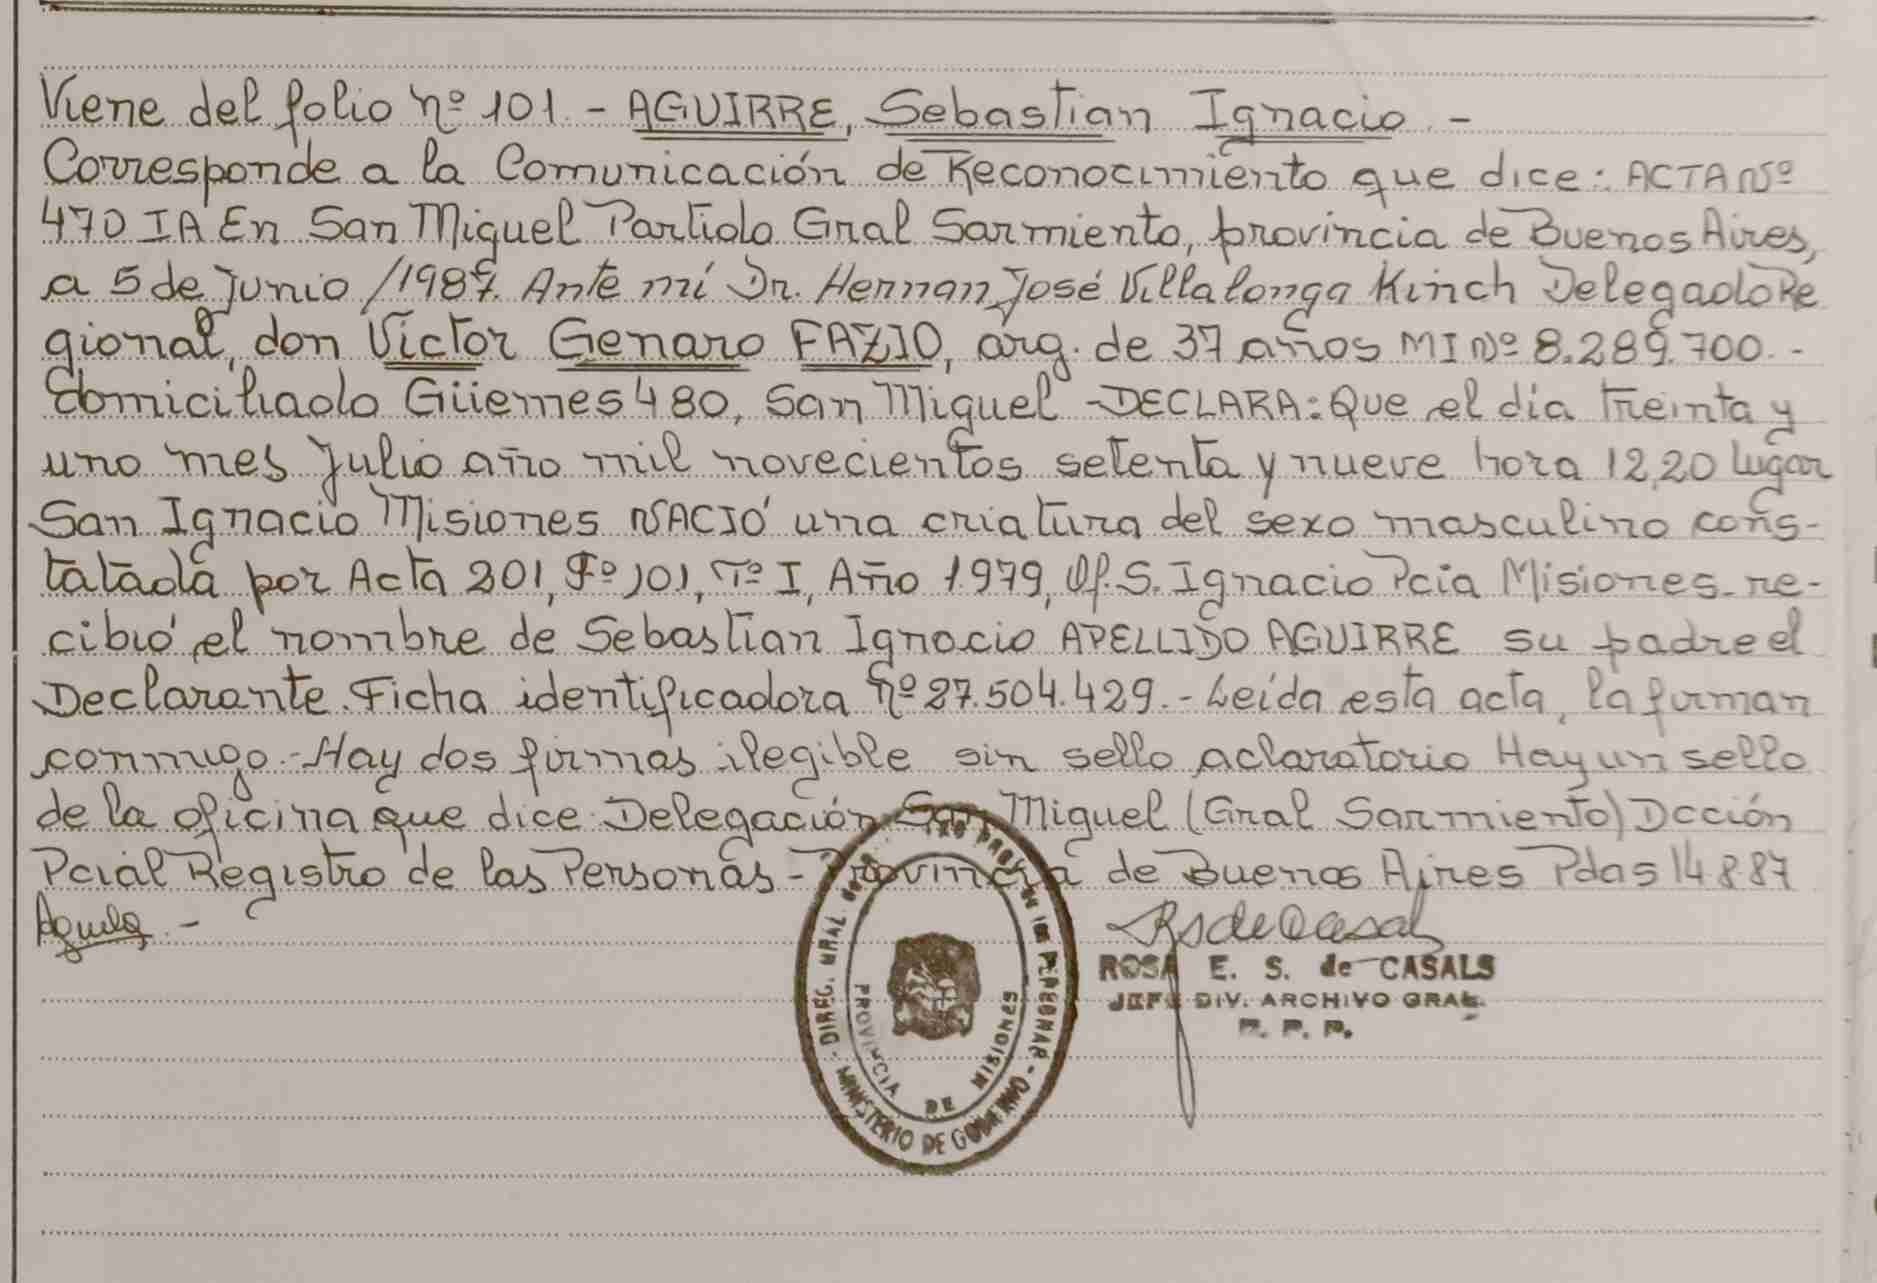 Viene del folio nº 101.- AGUIRRE, Sebastian Ignacio.-
Corresponde a la Comunicación de Reconocimiento que dice: ACTA Nº
470 IA En San Miguel Partido Gral Sarmiento, provincia de Buenos Aires,
a 5 de Junio /1987. Ante mí Dr. Hernan José Villalonga Kinch Delegado Re
gional, don Víctor Genaro FAZIO, arg. de 37 años MI Nº 8.289.700.-
domiciliado Güemes 480, San Miguel -DECLARA: Que el día treinta y
uno mes Julio año mil novecientos setenta y nueve hora 12,20 lugar
San Ignacio Misiones NACIÓ una criatura del sexo masculino cons-
tatada por Acta 201, Fº 101, Tº I, Año 1.979, Of. S. Ignacio Pcia Misiones- re-
cibió el nombre de Sebastian Ignacio APELLIDO AGUIRRE su padre el
Declarante. Ficha identificadora nº 27.504.429.- Leída esta acta, la firman
conmigo.- Hay dos firmas ilegible sin sello aclaratorio Hay un sello
de la oficina que dice Delegación San Miguel (Gral Sarmiento) Dcción
Pcial Registro de las Personas - Provincia de Buenos Aires Pdas 14887
ROSA E. S. de CASALS
JEFE DIV. ARCHIVO GRAL.
R. P. P.
PROVINCIA DE MISIONES
MINISTERIO DE GOBIERNO